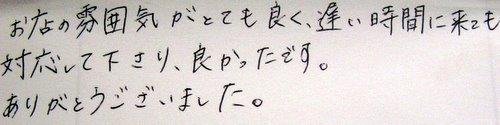 お店の雰囲気がとても良く、遅い時間に来ても
対応して下さり、良かったです。
ありがとうございました。